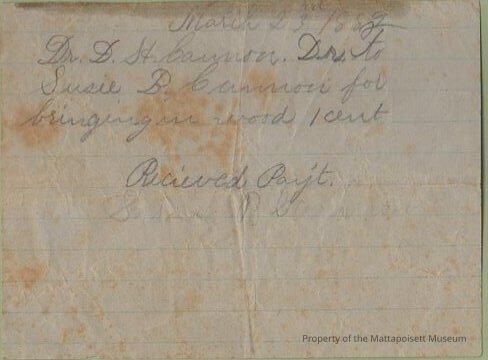 March 23rd 1882
Dr. D. H. Cannon. Dr. to
Susie B. Cannon for
bringing in wood 1 cent
Recieved Pay't.
Property of the Mattapoisett Museum